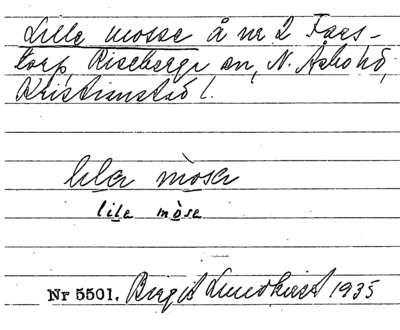 Lille mosse å nr 2 Fars-
torp, Riseberga sn, N. Åsbo hd,
Kristianstad l.
lila mosa
lila mòsa
Nr 5501. Birgit Lundkvist 1935